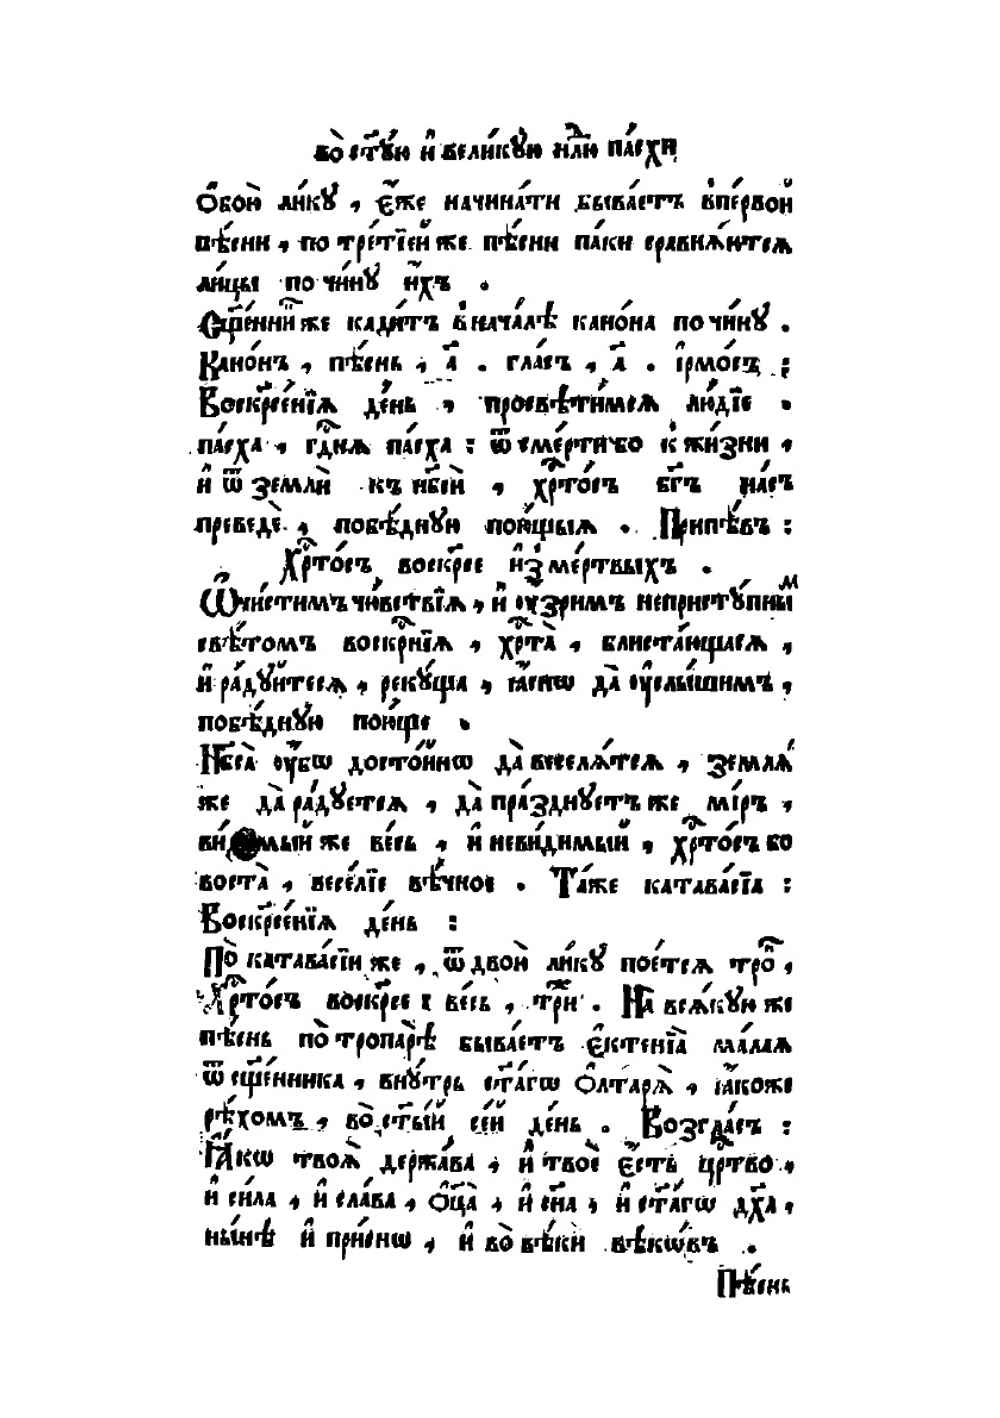 во̀ ст҃ꙋ́ю и҆ вели́кꙋю нлⷣю па́схи
Ѻ҆бою̀ ли́кꙋ , є҆́же начина́ти быва́етъ в̾пе́рвой
пѣ́сни , по тре́тїей же пѣ́сни па́ки сравнѧ́ютсѧ
ли́цы по чи́нꙋ и҆́хъ .
Сщ҃е́нїи же кади́тъ в̾нача́лѣ кано́на по чи́нꙋ .
Кано́нъ , пѣ́снь , а҃ . гла́съ , а҃ . і҆рмо́съ :
Воскрⷭ҇е́нїѧ де́нь , просвѣти́мсѧ лю́дїе .
па́сха , гдⷭ҇нѧ па́сха : ѿ сме́рти бо к̾ жи́зни ,
и҆ ѿ землѝ къ нб҃сѝ , хрⷭ҇то́съ бг҃ъ на́съ
преведѐ , побѣ́днꙋю пою́щыѧ . Припѣ́въ :
Хрⷭ҇то́съ воскр҃се и҆з̾ ме́ртвыхъ .
Ѡ҆чи́стимъ чꙋ́вствїѧ , и҆ ᲂу҆́зримъ непристꙋ́пныⷨ
свѣ́томъ воскрⷭ҇нїѧ , хрⷭ҇та̀ , блиста́ющасѧ ,
и҆ ра́дꙋйтесѧ , рекꙋ́ща , ꙗ҆́снѡ да̀ ᲂу҆слы́шимъ ,
побѣ́днꙋю пою́ще .
Нб҃са̀ ᲂу҆́бѡ досто́йнѡ да̀ веселѧ́тсѧ , землѧ́
же да̀ ра́дꙋетсѧ , да̀ пра́зднꙋетъ же мі́ръ ,
ви́димый же ве́сь , и҆ неви́димый , хрⷭ҇то́съ бо
воста̀ , весе́лїе вѣ́чное . Та́же катава́сїа :
Воскрⷭ҇е́нїѧ де́нь :
По̀ катава́сїи же , ѿ двою̀ ли́кꙋ пое́тсѧ тро́ⷫ ,
Хрⷭ҇то́съ воскр҃се : ве́сь , три́ⷤ . На всѧ́кꙋю же
пѣ́снь по̀ тропарѣ̀ быва́етъ є҆ктенїа̀ ма́лаѧ
ѿ сщ҃е́нника , внꙋ́трь ст҃а́гѡ ѻ҆лтарѧ̀ , ꙗ҆́коже
рѣ́хомъ , во̀ ст҃ы́й се́й де́нь . Возгла́съ :
Ꙗ҆́кѡ твоѧ̀ держа́ва , и҆ твоѐ є҆́сть црⷭ҇тво ,
и҆ си́ла , и҆ сла́ва , ѻ҆ц҃а̀ , и҆ сн҃а , и҆ ст҃а́гѡ дх҃а ,
ны́нѣ и҆ при́снѡ , и҆ во̀ вѣ́ки вѣкѡ́въ .
Пѣ́снь